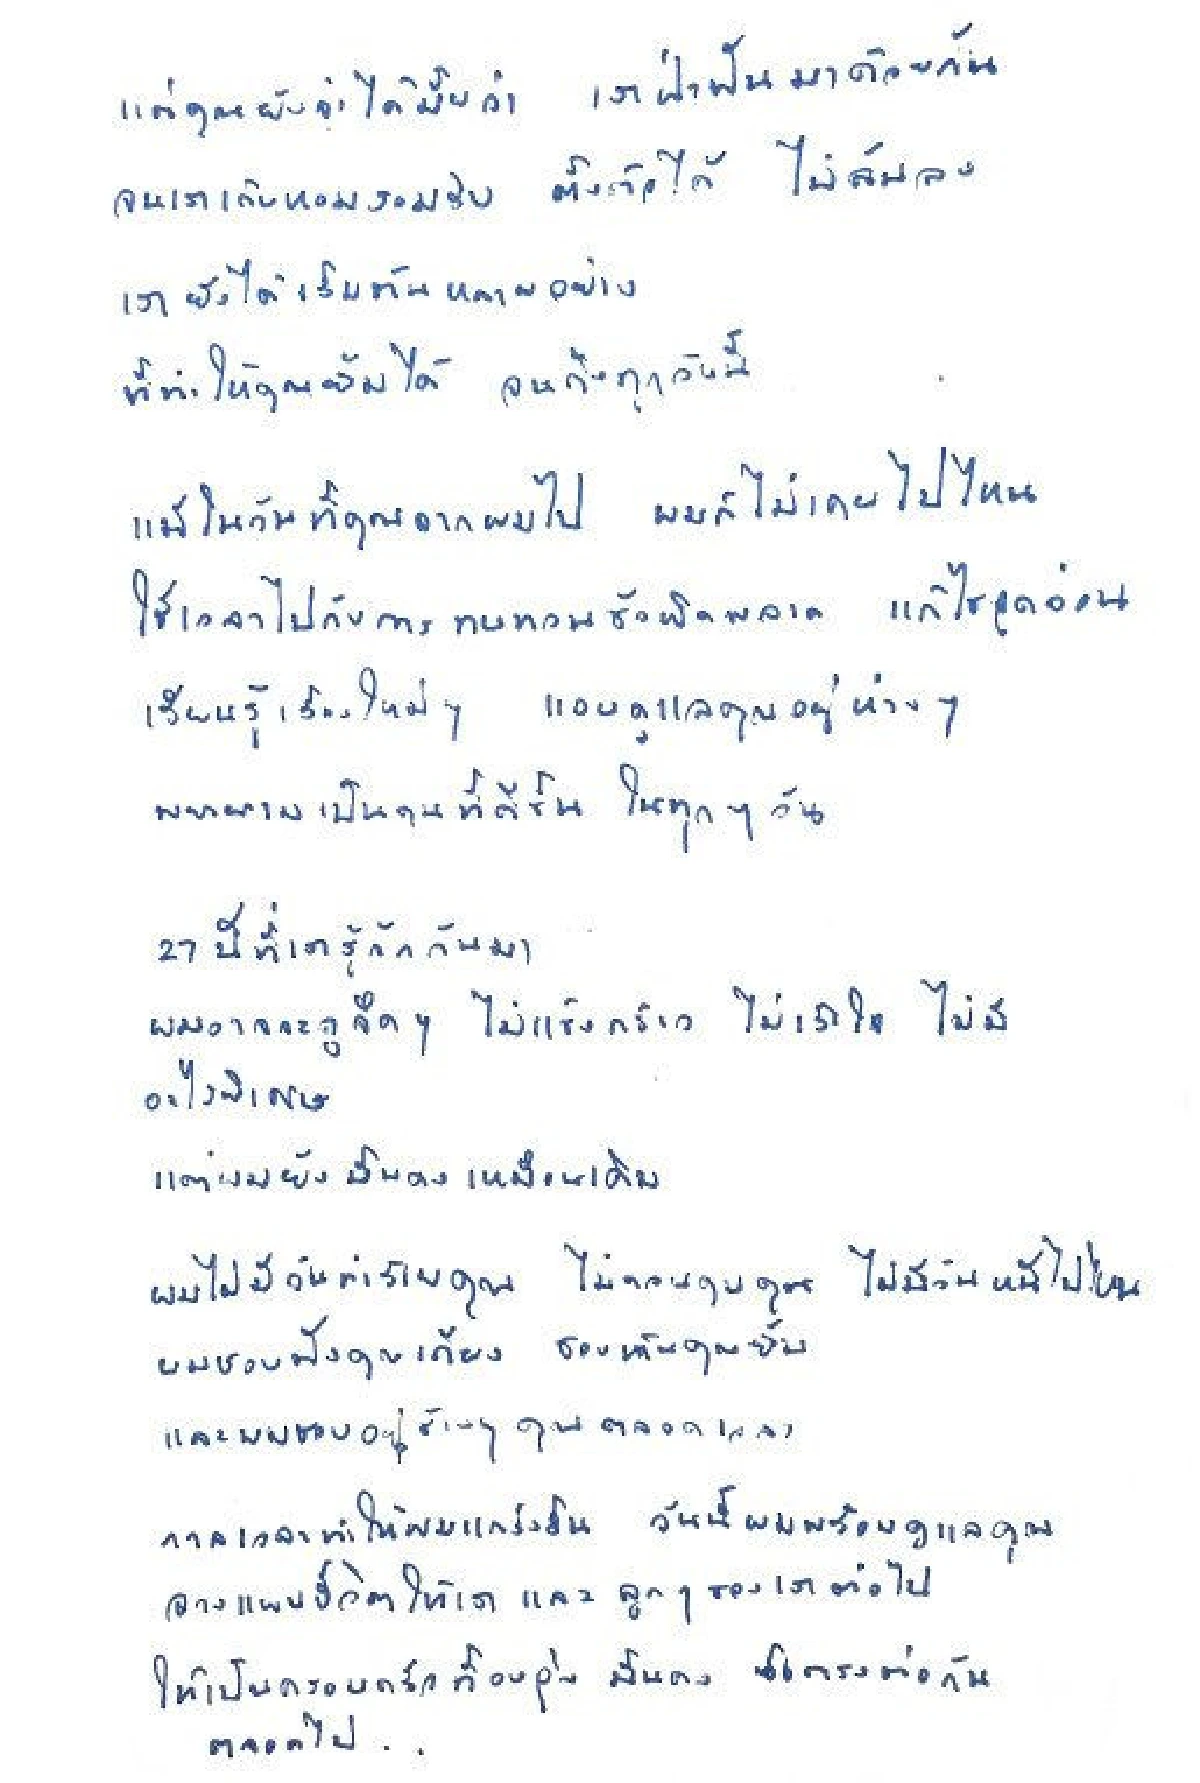 แต่คุณยังจำได้มั้ยว่า เราฝ่าฟันมาด้วยกัน
จนเราเก็บหอมรอมริบ ตั้งตัวได้ ไม่ล้มลง
เรายังได้เริ่มกันหลายอย่าง
ที่ทำให้คุณยิ้มได้ จนถึงทุกวันนี้
แม้ในวันที่คุณจากผมไป ผมก็ไม่เคยไปไหน
ใช้เวลาไปกับการทบทวนข้อผิดพลาด แก้ไขจุดอ่อน
เรียนรู้เรื่องใหม่ๆ แอบดูแลคุณอยู่ห่างๆ
พยายามเป็นคนที่ดีขึ้น ในทุกๆ วัน
27 ปีที่เรารู้จักกันมา
ผมอาจจะดูจืดๆ ไม่แข็งกร้าว ไม่เร้าใจ ไม่มี
อะไรพิเศษ
แต่ผมยังมั่นคงเหมือนเดิม
ผมไม่มีวันทำร้ายคุณ ไม่ควบคุมคุณ ไม่มีวันหนีไปไหน
ผมชอบฟังคุณเถียง ชอบเห็นคุณยิ้ม
และผมชอบอยู่ข้างๆ คุณตลอดเวลา
กาลเวลาทำให้ผมแกร่งขึ้น วันนี้ผมพร้อมดูแลคุณ
วางแผนชีวิตให้เรา และ ลูกๆ ของเราต่อไป
ให้เป็นครอบครัวที่อบอุ่น มั่นคง ซื่อตรงต่อกัน
ตลอดไป . .